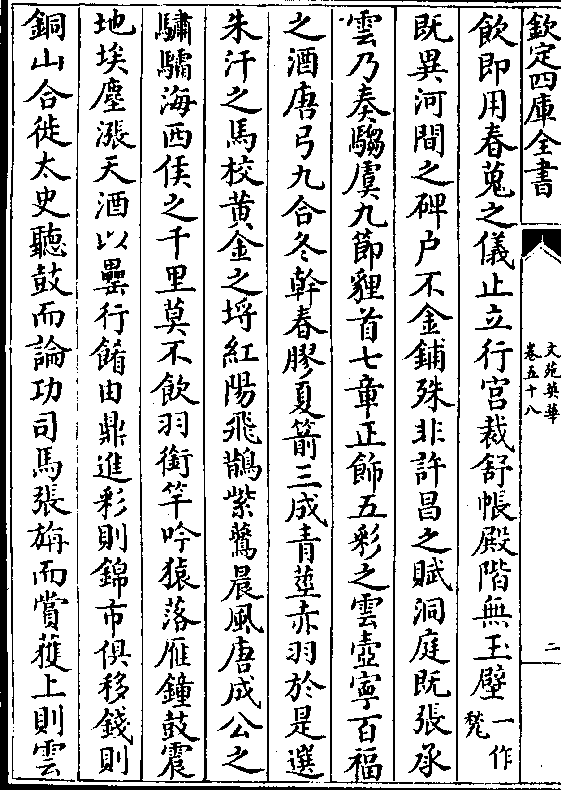 欽定四庫全書
文苑英華
卷五十八
二
飲即用春蒐之儀止立行宮裁舒帳殿階無玉璧一作甃
既異河間之碑户不金鋪殊非許昌之賦洞庭既張承
雲乃奏騶虞九節貍首七章正飾五彩之雲壺寧百福
之酒唐弓九合冬幹春膠夏箭三成青莖赤羽於是選
朱汗之馬校黄金之埒紅陽飛鵲紫鷰晨風唐成公之
驌驦海西侯之千里莫不飲羽銜竿吟猿落雁鐘鼓震
地埃塵漲天酒以罍行餚由鼎進彩則錦市俱移錢則
銅山合徙太史聽鼓而論功司馬張旃而賞獲上則雲